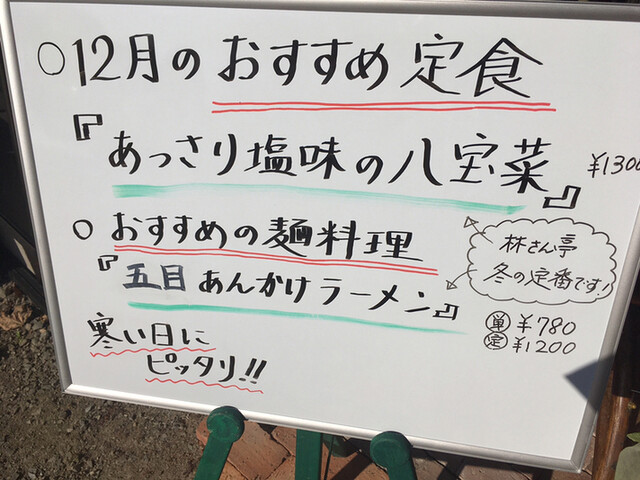 ○12月のおすすめ定食
『あっさり塩味の八宝菜』 ¥1300
○ おすすめの麺料理
『五目あんかけラーメン』
林さん亭
冬の定番です!
単 ¥780
定 ¥1200
寒い日に
ピッタリ!!